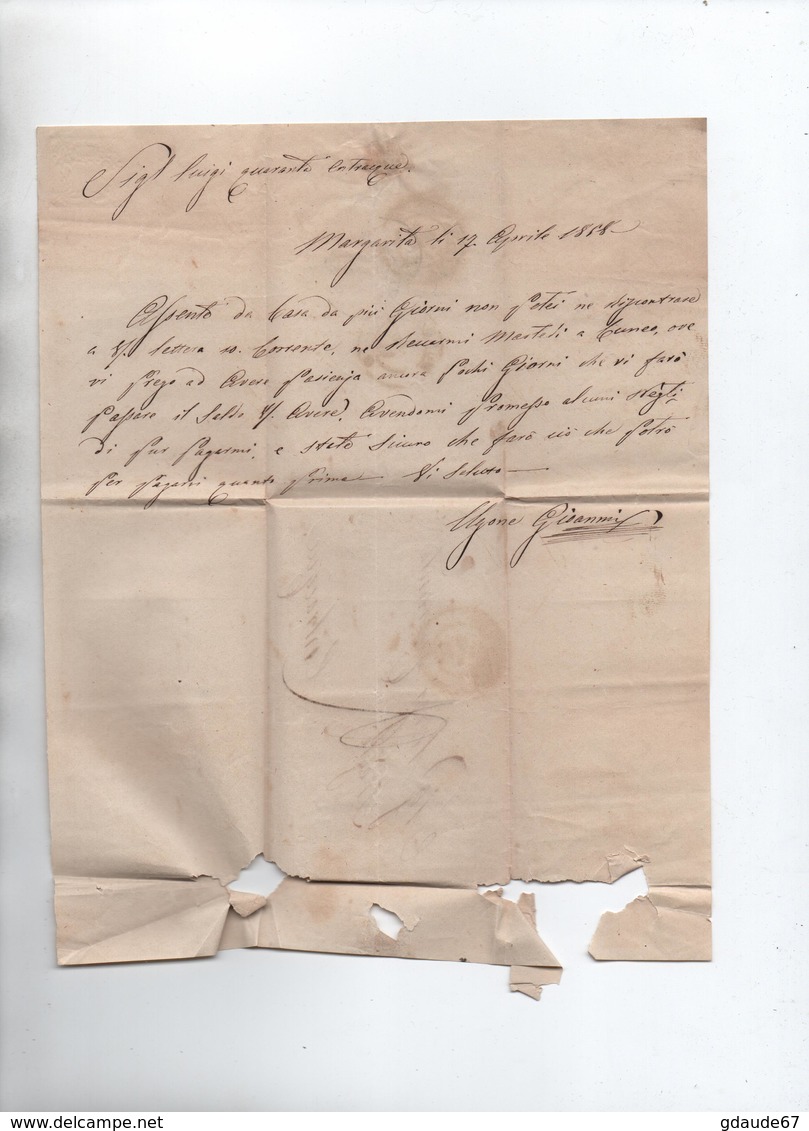 Sigr Luigi quaranta Entracque.
Margarita li 17. Aprile 1868
Assente da Casa da più Giorni non Potei ne riscontrare
a V/. lettera 10. Corrente, ne recarmi Martedì a Cuneo, ove
vi Prego ad Avere Pasienza ancora Pochi Giorni che vi farò
Passare il Saldo V/. Avere, Avendomi Promesso alcuni
di Pagarmi, e State Sicuro che farò ciò che Potrò
Per Pagarvi quanto Prima Vi Saluto
Gioanni
gdaude67
www.delcampe.net